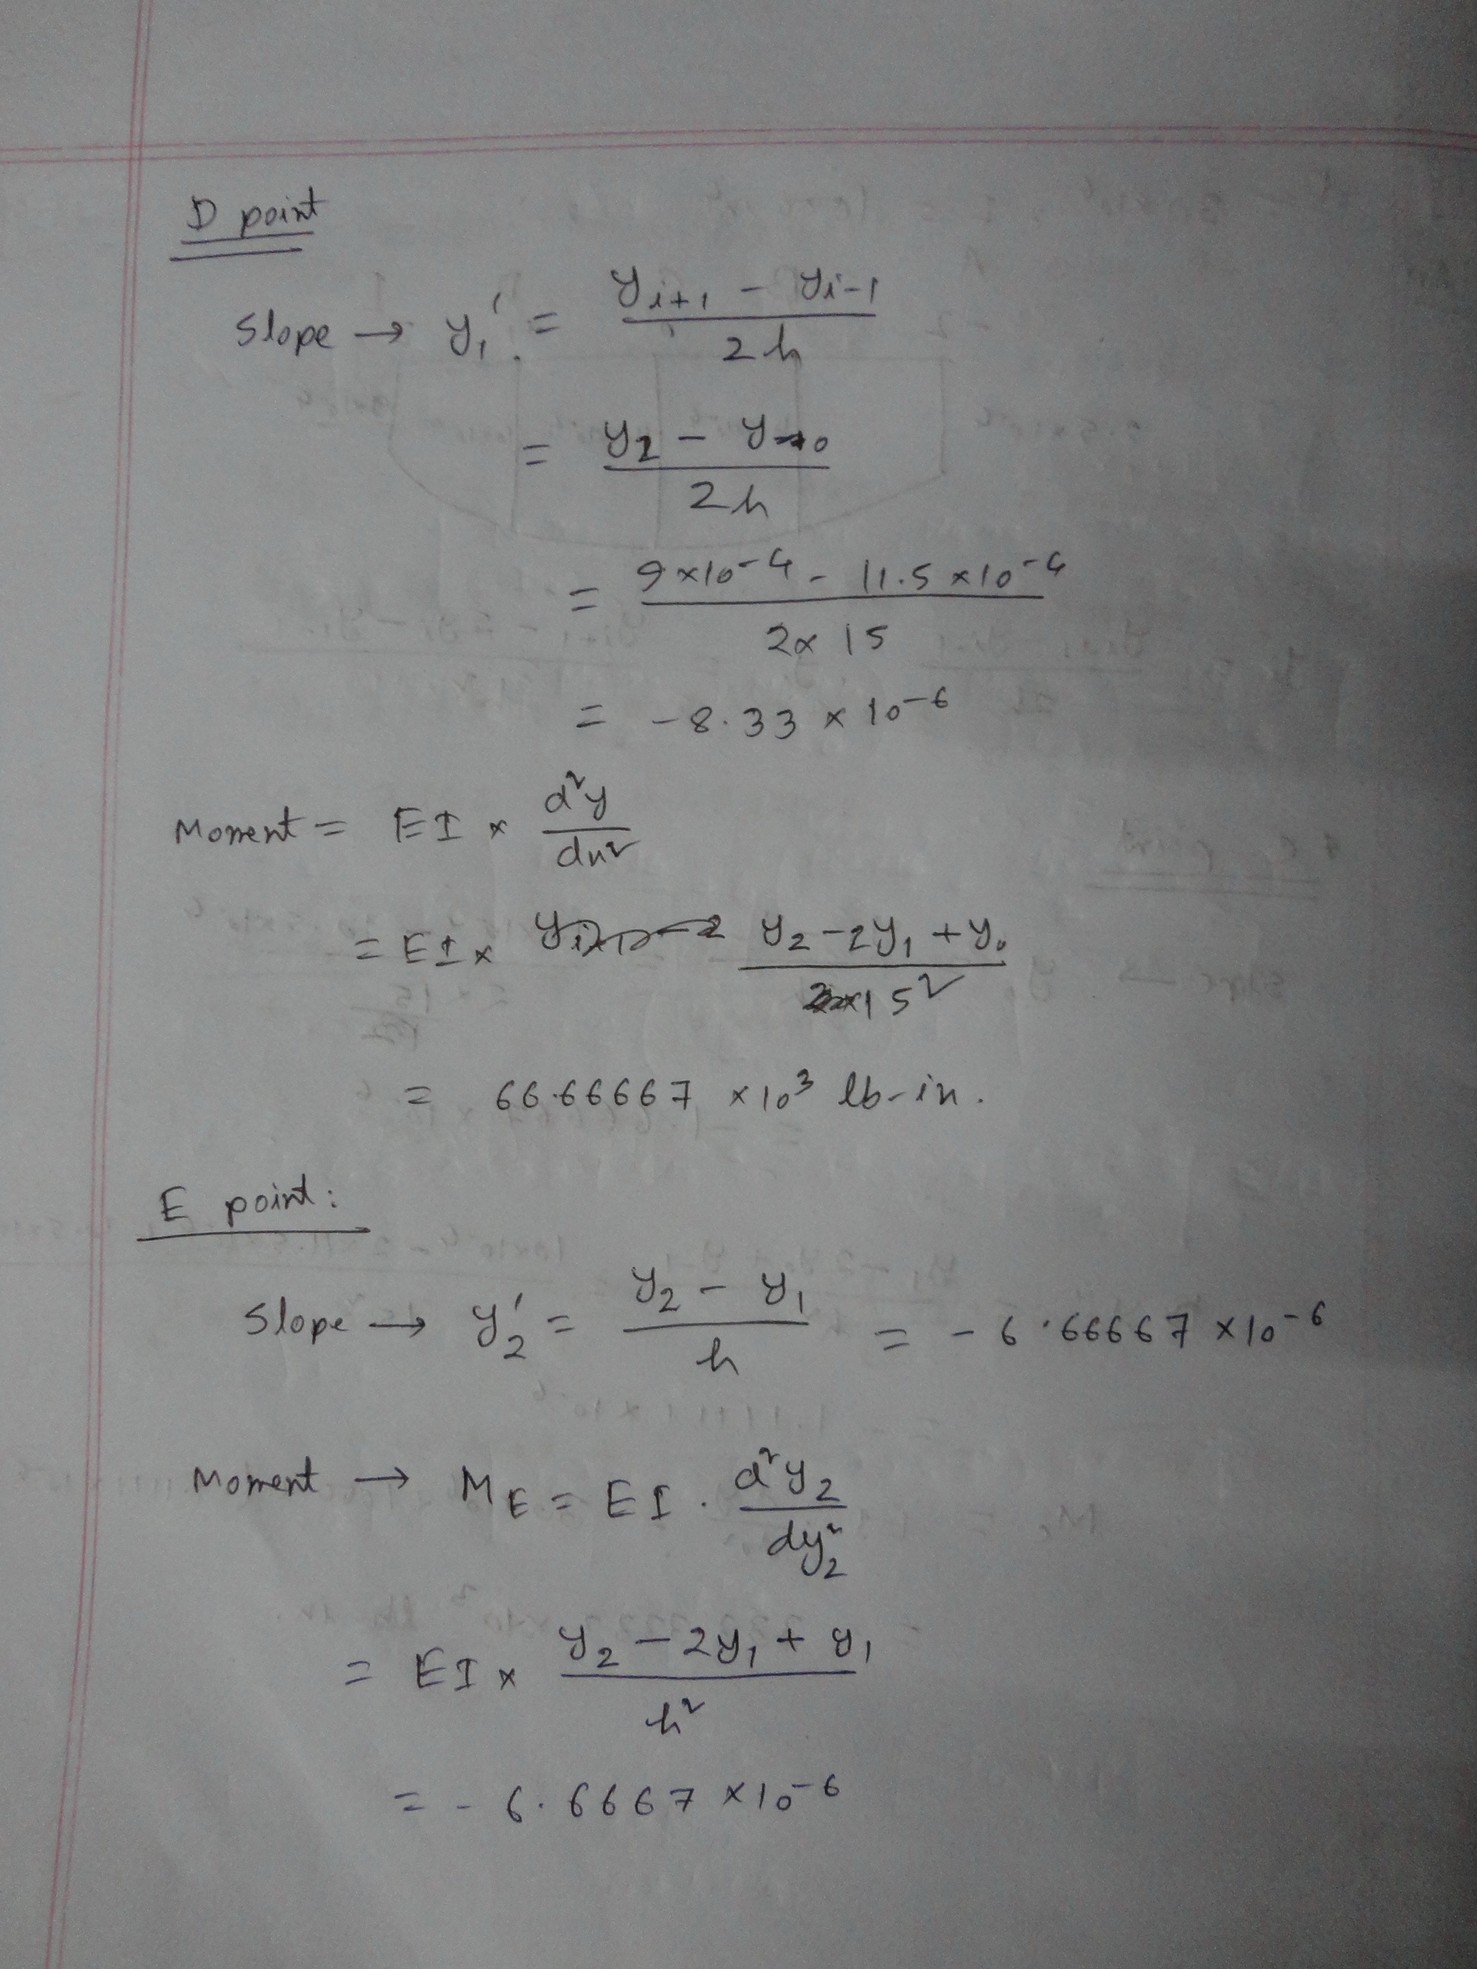 D point
Slope → y₁' = (y_{i+1} - y_{i-1}) / 2h
= (y₂ - y₀) / 2h
= (9×10⁻⁴ - 11.5×10⁻⁴) / (2×15)
= -8.33 × 10⁻⁶
Moment = EI × d²y/dx²
= EI × (y₂ - 2y₁ + y₀) / 15²
= 66.66667 × 10³ lb-in.
E point:
Slope → y₂' = (y₂ - y₁) / h = - 6.66667 × 10⁻⁶
Moment → M_E = EI · d²y₂/dy₂²
= EI × (y₂ - 2y₁ + y₁) / h²
= - 6.6667 × 10⁻⁶